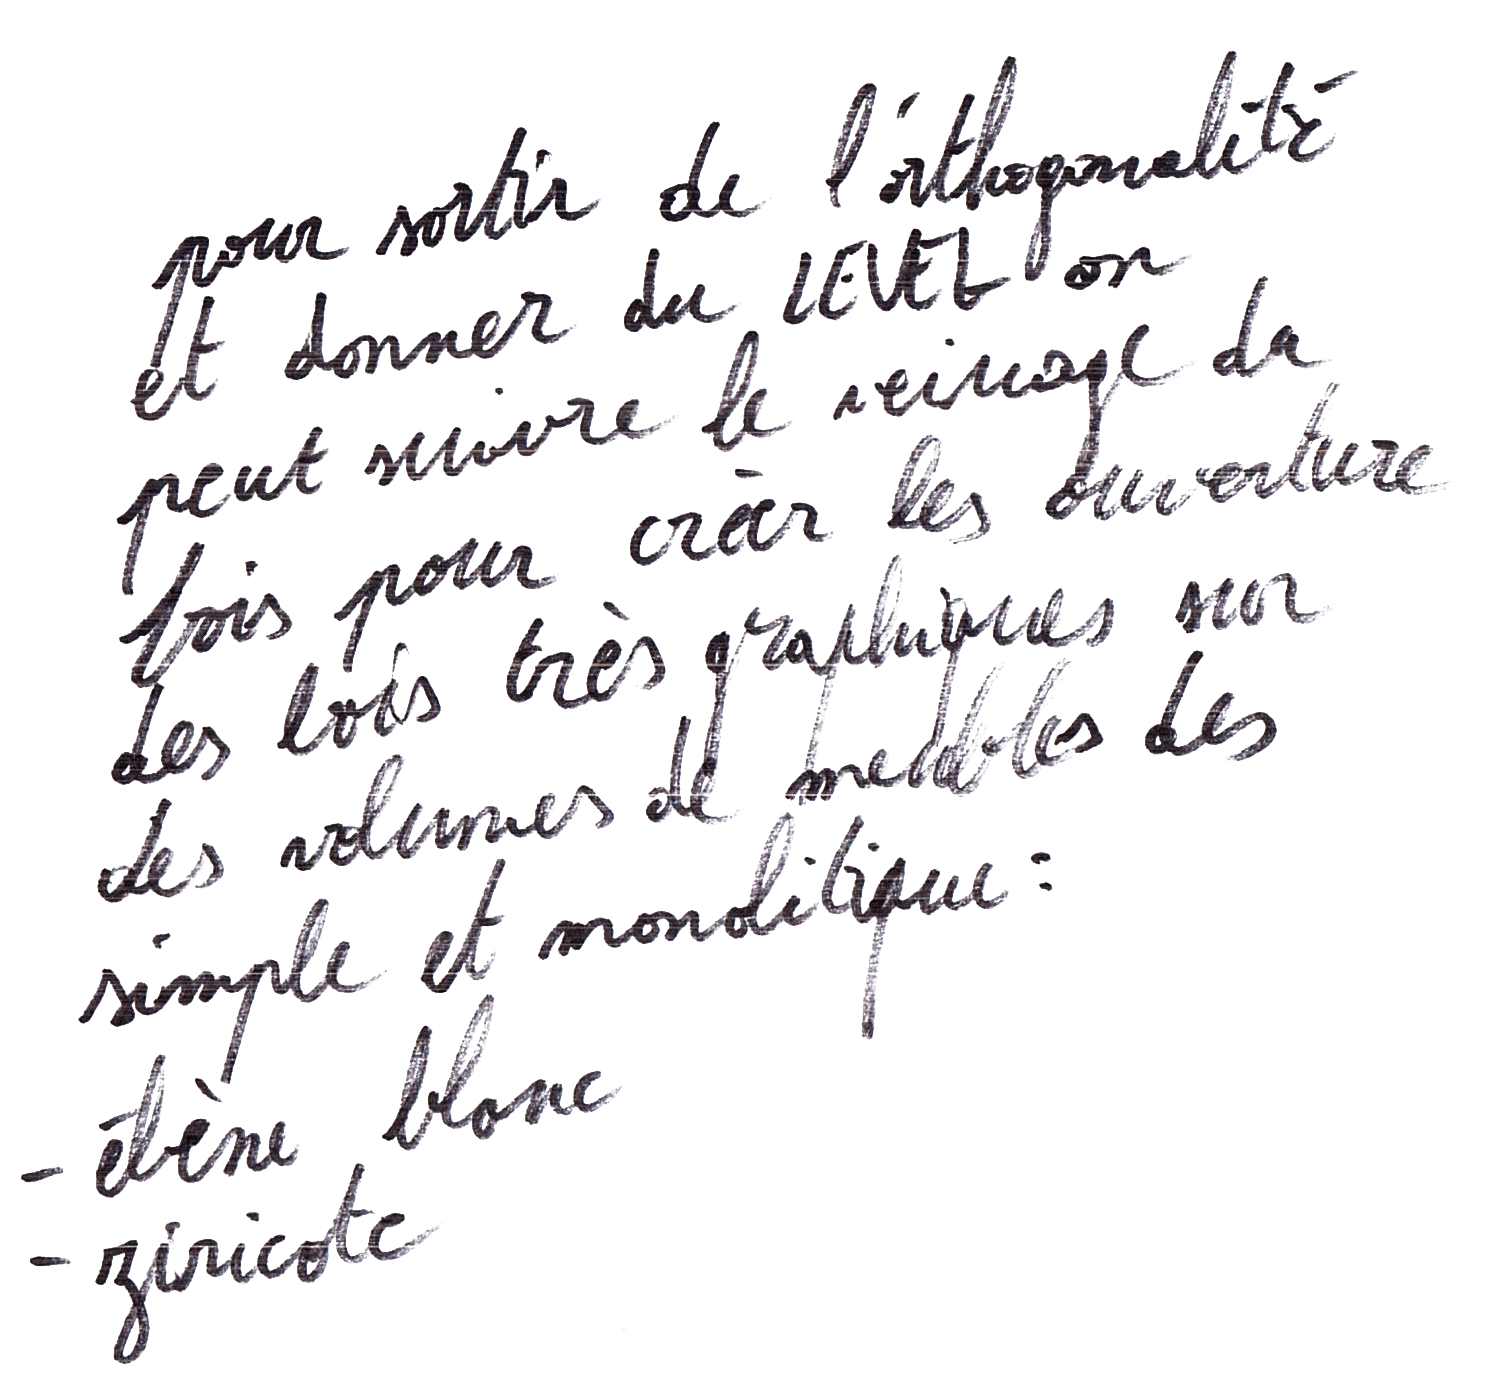 pour sortir de l'orthogonalité
et donner du LEVEL on
peut suivre le veinage du
bois pour créer les ouverture
des bois très graphiques sur
des volumes de meubles des
simple et monolitique :
- ébène blanc
- ziricote